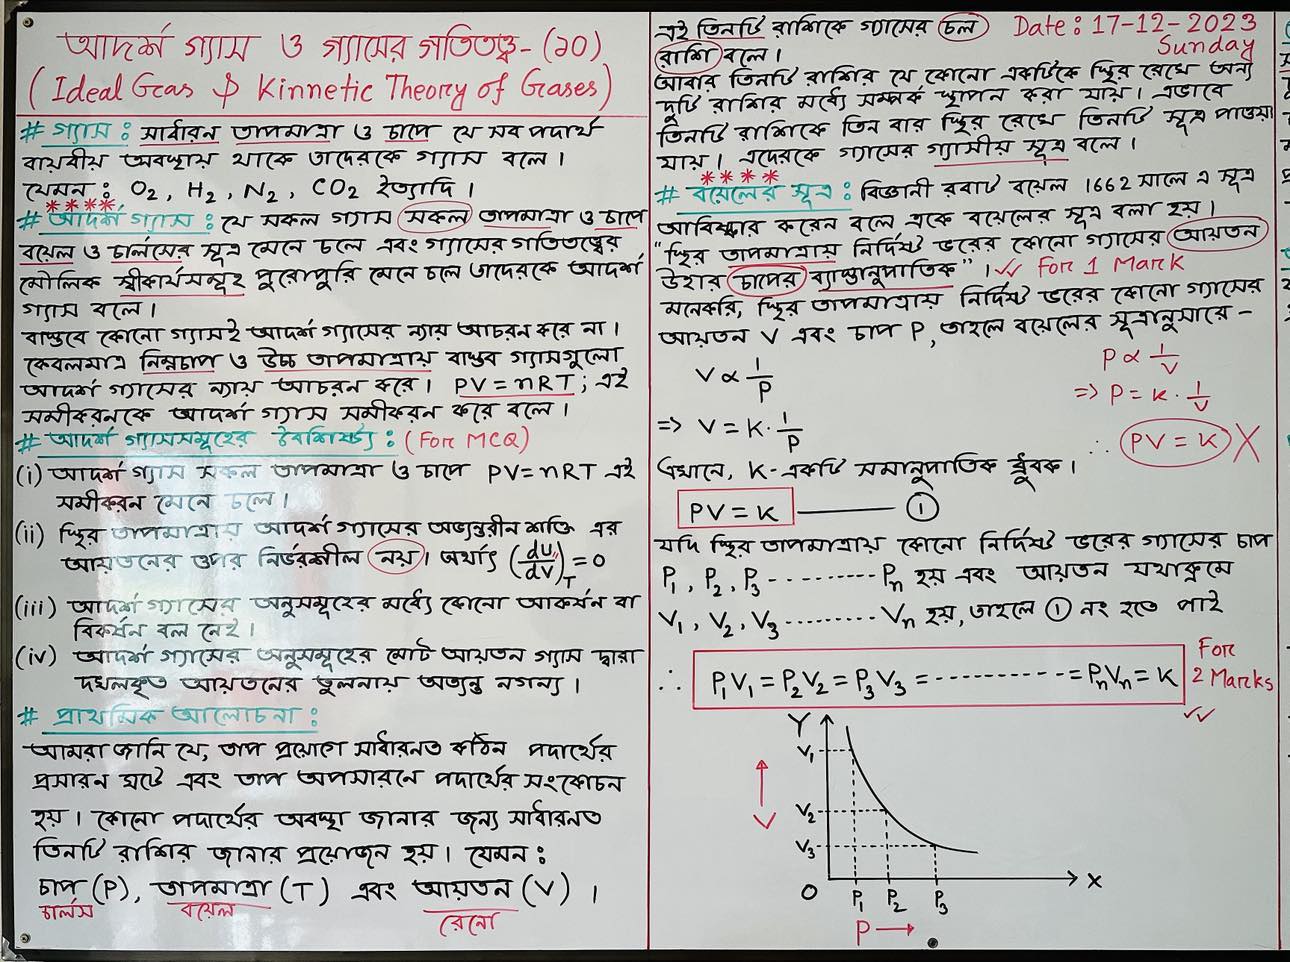 আদর্শ গ্যাস ও গ্যাসের গতিতত্ত্ব-(১০)
(Ideal Gas & Kinnetic Theory of Gases)
# গ্যাস : সাধারন তাপমাত্রা ও চাপে যে সব পদার্থ
বায়বীয় অবস্থায় থাকে তাদেরকে গ্যাস বলে।
যেমন : O₂, H₂, N₂, CO₂ ইত্যাদি।
****
# আদর্শ গ্যাস : যে সকল গ্যাস সকল তাপমাত্রা ও চাপে
বয়েল ও চার্লসের সূত্র মেনে চলে এবং গ্যাসের গতিতত্ত্বের
মৌলিক স্বীকার্যসমূহ পুরোপুরি মেনে চলে তাদেরকে আদর্শ
গ্যাস বলে।
বাস্তবে কোনো গ্যাসই আদর্শ গ্যাসের ন্যায় আচরন করে না।
কেবলমাত্র নিম্নচাপ ও উচ্চ তাপমাত্রায় বাস্তব গ্যাসগুলো
আদর্শ গ্যাসের ন্যায় আচরন করে। PV = nRT ; এই
সমীকরনকে আদর্শ গ্যাস সমীকরন করে বলে।
# আদর্শ গ্যাসসমূহের বৈশিষ্ট্য : (For MCQ)
(i) আদর্শ গ্যাস সকল তাপমাত্রা ও চাপে PV = nRT এই
সমীকরন মেনে চলে।
(ii) স্থির তাপমাত্রায় আদর্শ গ্যাসের অভ্যন্তরীন শক্তি এর
আয়তনের ওপর নির্ভরশীল নয়। অর্থাৎ (du/dv)T = 0
(iii) আদর্শ গ্যাসের অনুসমূহের মধ্যে কোনো আকর্ষন বা
বিকর্ষন বল নেই।
(iv) আদর্শ গ্যাসের অনুসমূহের মোট আয়তন গ্যাস দ্বারা
দখলকৃত আয়তনের তুলনায় অত্যন্ত নগন্য।
# প্রাথমিক আলোচনা :
আমরা জানি যে, তাপ প্রয়োগে সাধারনত কঠিন পদার্থের
প্রসারন ঘটে এবং তাপ অপসারনে পদার্থের সংকোচন
হয়। কোনো পদার্থের অবস্থা জানার জন্য সাধারনত
তিনটি রাশির জানার প্রয়োজন হয়। যেমন :
চাপ (P), তাপমাত্রা (T) এবং আয়তন (V) ।
চার্লস বয়েল রেনো
এই তিনটি রাশিকে গ্যাসের চল Date : 17-12-2023
রাশি বলে। Sunday
আবার তিনটি রাশির যে কোনো একটিকে স্থির রেখে অন্য
দুটি রাশির মধ্যে সম্পর্ক স্থাপন করা যায়। এভাবে
তিনটি রাশিকে তিন বার স্থির রেখে তিনটি সূত্র পাওয়া
যায়। এদেরকে গ্যাসের গ্যাসীয় সূত্র বলে।
****
# বয়েলের সূত্র : বিজ্ঞানী রবার্ট বয়েল 1662 সালে এ সূত্র
আবিষ্কার করেন বলে একে বয়েলের সূত্র বলা হয়।
"স্থির তাপমাত্রায় নির্দিষ্ট ভরের কোনো গ্যাসের আয়তন
উহার চাপের ব্যাস্তানুপাতিক"। ✓✓ For 1 Mark
মনেকরি, স্থির তাপমাত্রায় নির্দিষ্ট ভরের কোনো গ্যাসের
আয়তন V এবং চাপ P, তাহলে বয়েলের সূত্রানুসারে -
V ∝ 1/P
P ∝ 1/V
⇒ P = K · 1/V
⇒ V = K · 1/P
∴ PV = K X
এখানে, K-একটি সমানুপাতিক ধ্রুবক।
PV = K ——— ①
যদি স্থির তাপমাত্রায় কোনো নির্দিষ্ট ভরের গ্যাসের চাপ
P₁, P₂, P₃ ---------- Pₙ হয় এবং আয়তন যথাক্রমে
V₁, V₂, V₃ --------- Vₙ হয়, তাহলে ① নং হতে পাই
∴ P₁V₁ = P₂V₂ = P₃V₃ = ----------- = PₙVₙ = K
For
2 Marks
✓✓
Y
V₁
V₂
V₃
O P₁ P₂ P₃ X
P →